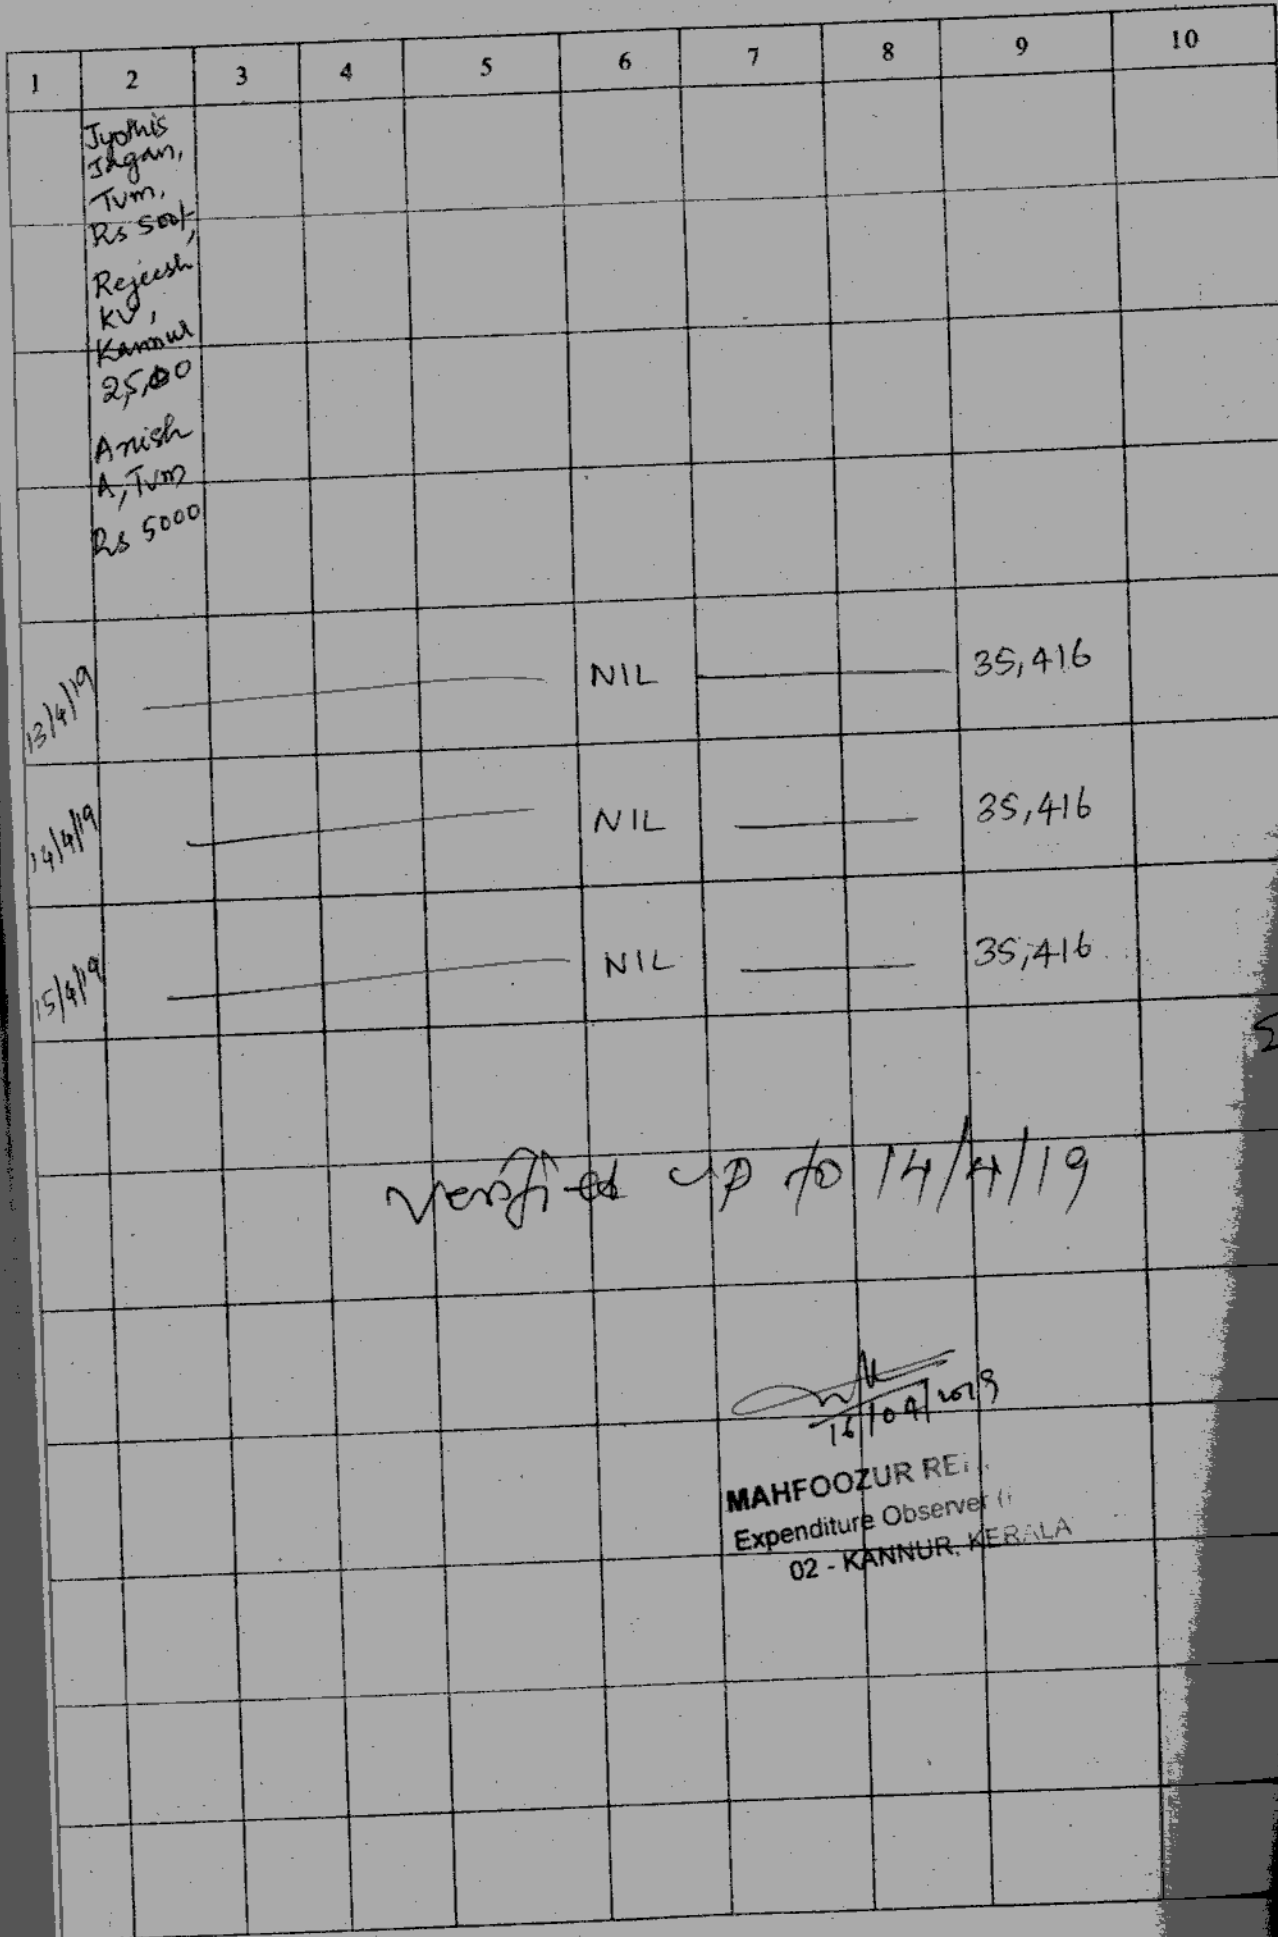 1 2 3 4 5 6 7 8 9 10
Jyothis
Jagan,
Tvm,
Rs 500/-,
Rejeesh
KV,
Kannur
Anish
A, Tvm
Rs 5000
13/4/19 NIL 35,416
14/4/19 NIL 35,416
15/4/19 NIL 35,416
Verified up to 14/4/19
16/04/2019
MAHFOOZUR
Expenditure Observer
02 - KANNUR, KERALA